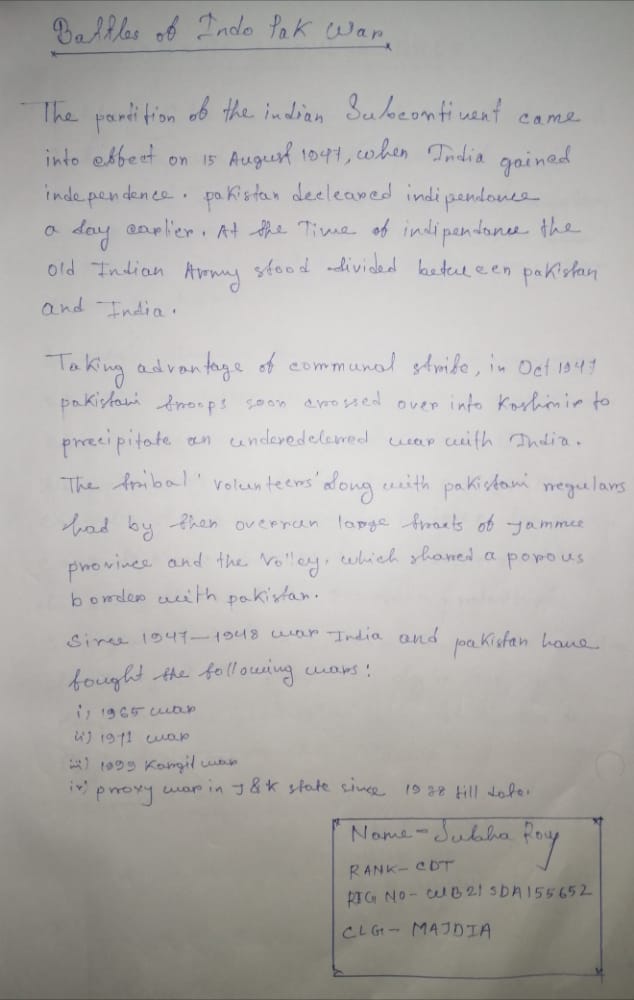 Battles of Indo Pak War
The partition of the indian Subcontinent came
into effect on 15 August 1947, when India gained
independence. pakistan decleared indipendance
a day earlier. At the Time of indipendance the
old Indian Army stood divided between pakistan
and India.
Taking advantage of communal strife, in Oct 1947
pakistani troops soon crossed over into Kashmir to
precipitate an underedeclerred war with India.
The tribal 'volunteers' along with pakistani regulars
had by then overrun large tracts of Jammu
province and the Valley, which shared a porous
border with pakistan.
Since 1947-1948 war India and pakistan have
fought the following wars:
i) 1965 war
ii) 1971 war
iii) 1999 Kargil war
iv) proxy war in J&K state since 1988 till date.
Name- Subha Roy
RANK- CDT
REG NO- WB21SDA155652
CLG- MAJDIA